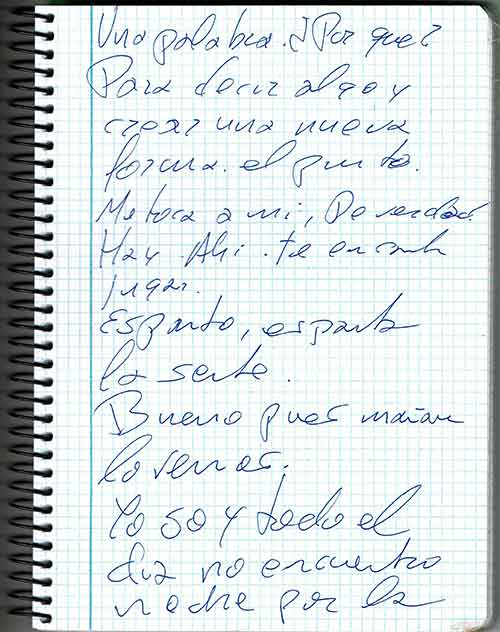 Una palabra. ¿Por que?
Para decir algo y
crear una nueva
forma. el punto.
Me toca a mi, De verdad.
Hay Ahi. te encanta
jugar.
Esparto, esparta
la sente.
Bueno pues mañana
lo vemos.
Yo soy todo el
dia no encuentro
nadie por la